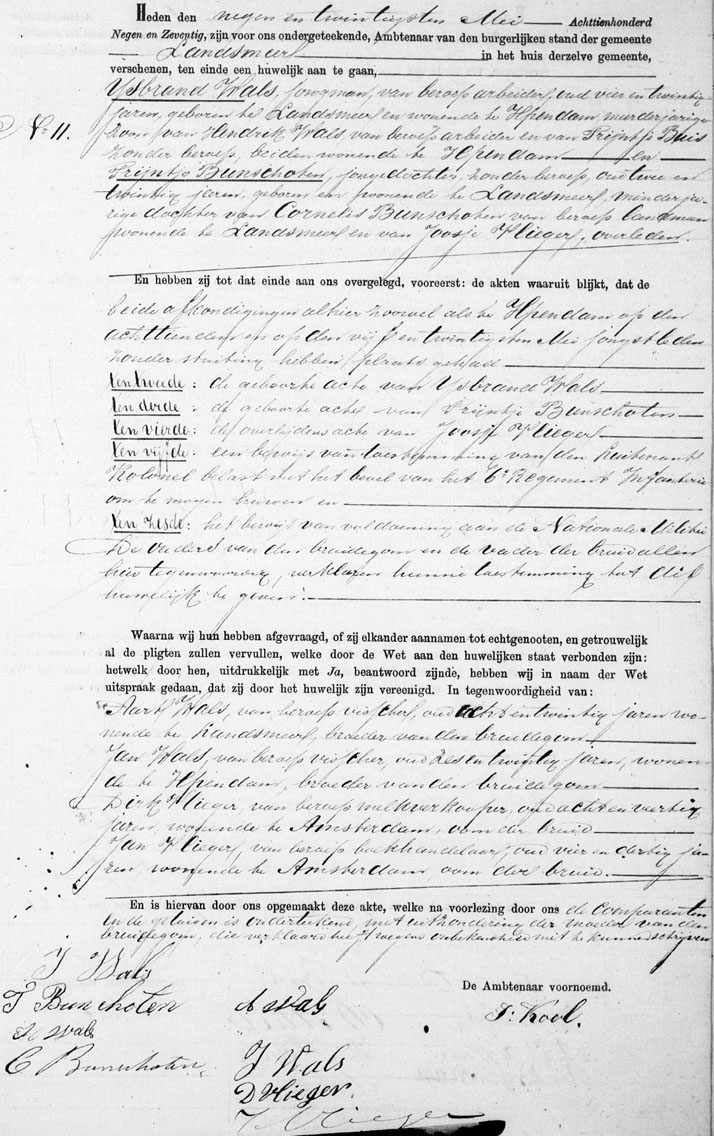 Heden den negen en twintigsten Mei Achttienhonderd
Negen en Zeventig, zijn voor ons ondergeteekende, Ambtenaar van den burgerlijken stand der gemeente
Landsmeer in het huis derzelve gemeente,
verschenen, ten einde een huwelijk aan te gaan,
No 11.
IJsbrand Wals, jongman, van beroep arbeider, oud vier en twintig
jaren, geboren te Landsmeer en wonende te Ilpendam, meerderjarige
zoon van Hendrik Wals, van beroep arbeider en van Trijntje Buis
zonder beroep, beiden wonende te Ilpendam en
Trijntje Bunschoten, jongedochter, zonder beroep, oud twee en
twintig jaren, geboren en wonende te Landsmeer, minderja-
rige dochter van Cornelis Bunschoten van beroep landman
wonende te Landsmeer en van Joosje Vlieger, overleden.
En hebben zij tot dat einde aan ons overgelegd, vooreerst: de akten waaruit blijkt, dat de
beide afkondigingen alhier zoowel als te Ilpendam op den
achttienden en op den vijf en twintigsten Mei jongstleden
zonder stuiting hebben plaats gehad
ten tweede: de geboorte acte van IJsbrand Wals
ten derde: de geboorte acte van Trijntje Bunschoten
ten vierde: de overlijdens acte van Joosje Vlieger
ten vijfde: een bewijs van toestemming van den Luitenant
Kolonel belast met het bevel van het 6e Regement Infanterie
om te mogen trouwen en
ten zesde: het bewijs van voldoening aan de Nationale Militie
De ouders van den bruidegom en de vader der bruid allen
hier tegenwoordig, verklaren hunne toestemming tot dit
huwelijk te geven.
Waarna wij hun hebben afgevraagd, of zij elkander aannamen tot echtgenooten, en getrouwelijk
al de pligten zullen vervullen, welke door de Wet aan den huwelijken staat verbonden zijn:
hetwelk door hen, uitdrukkelijk met Ja, beantwoord zijnde, hebben wij in naam der Wet
uitspraak gedaan, dat zij door het huwelijk zijn vereenigd. In tegenwoordigheid van:
Aart Wals, van beroep visscher, oud acht en twintig jaren wo-
nende te Landsmeer, broeder van den bruidegom
Jan Wals, van beroep visscher, oud zes en twintig jaren, wonen-
de te Ilpendam, broeder van den bruidegom
Dirk Vlieger, van beroep melkverkooper, oud acht en veertig
jaren, wonende te Amsterdam, oom der bruid
Jan Vlieger, van beroep boekhandelaar, oud vier en dertig ja-
ren, wonende te Amsterdam oom der bruid.
En is hiervan door ons opgemaakt deze akte, welke na voorlezing door ons de Comparanten
en de getuigen is onderteekend, met uitzondering der moeder van den
bruidegom, die verklaard heeft wegens onbekendheid niet te kunnen schrijven
IJ Wals
T Bunschoten
H Wals
C Bunschoten
A Wals
J Wals
D Vlieger
J Vlieger
De Ambtenaar voornoemd.
J. Kool.